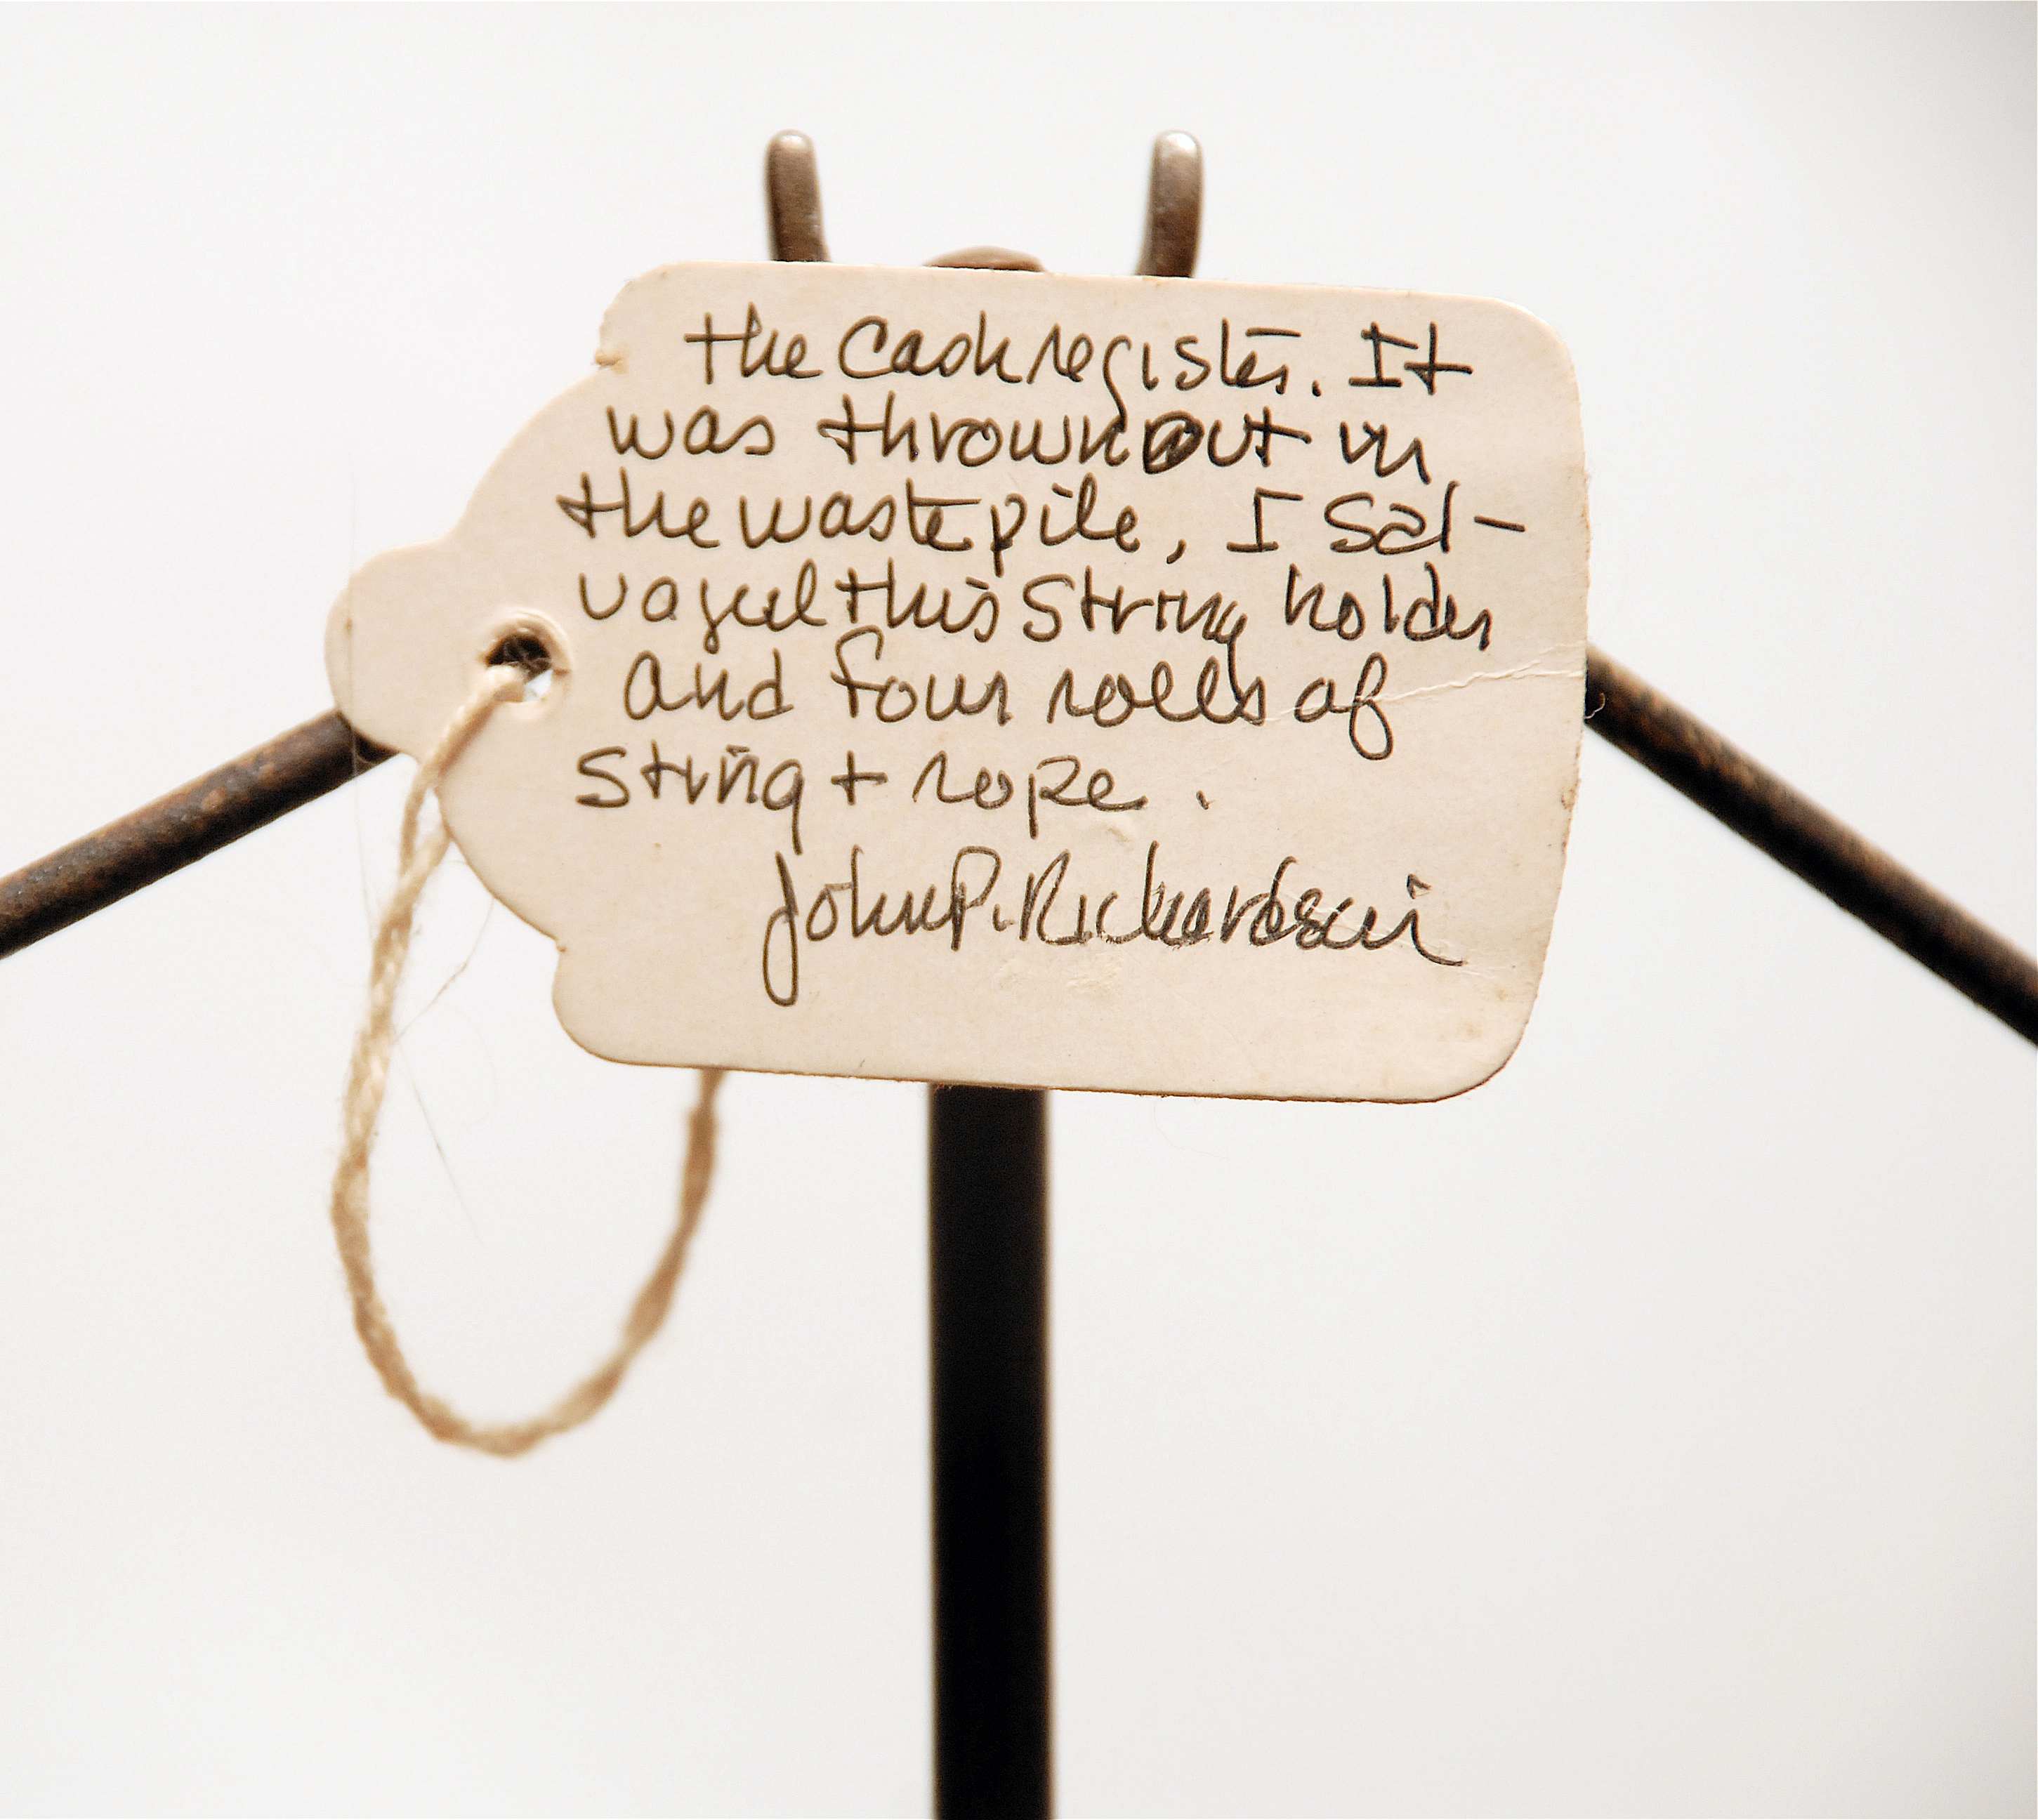 the cash register. It
was thrown out in
the waste pile, I sal-
vaged this string holder
and four rolls of
string + rope.
John P. Richardson